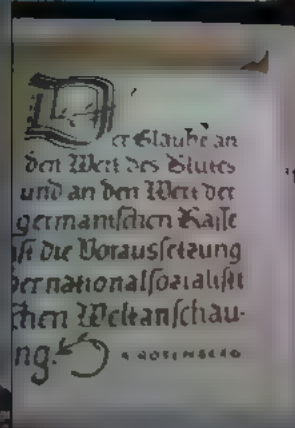 Der Glaube an
den Wert des Blutes
und an den Wert der
germanischen Rasse
ist die Voraussetzung
der nationalsozialisti
schen Weltanschau-
ng.
A ROSENBERG